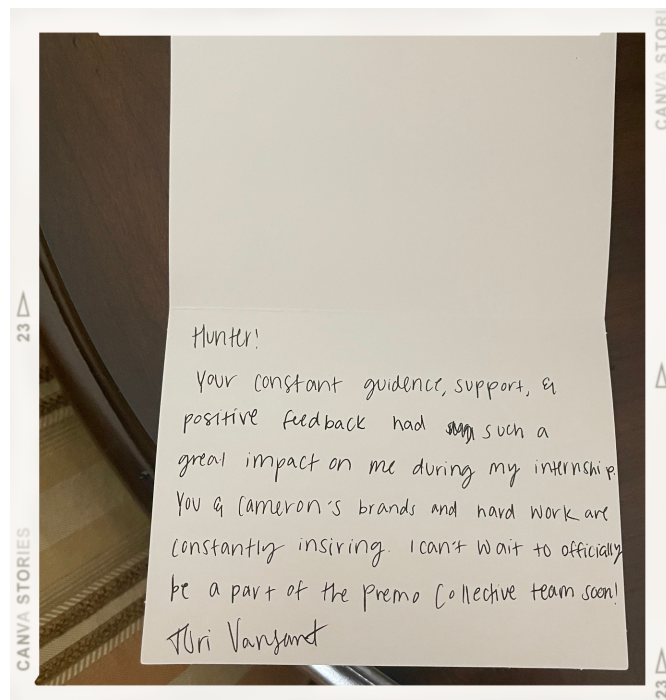 CANVA STORIES
23
Hunter!
Your constant guidence, support, &
positive feedback had such a
great impact on me during my internship.
You & Cameron's brands and hard work are
constantly insiring. I can't wait to officially
be a part of the Premo Collective team soon!
Tori Vansant
CANVA STORIES
23